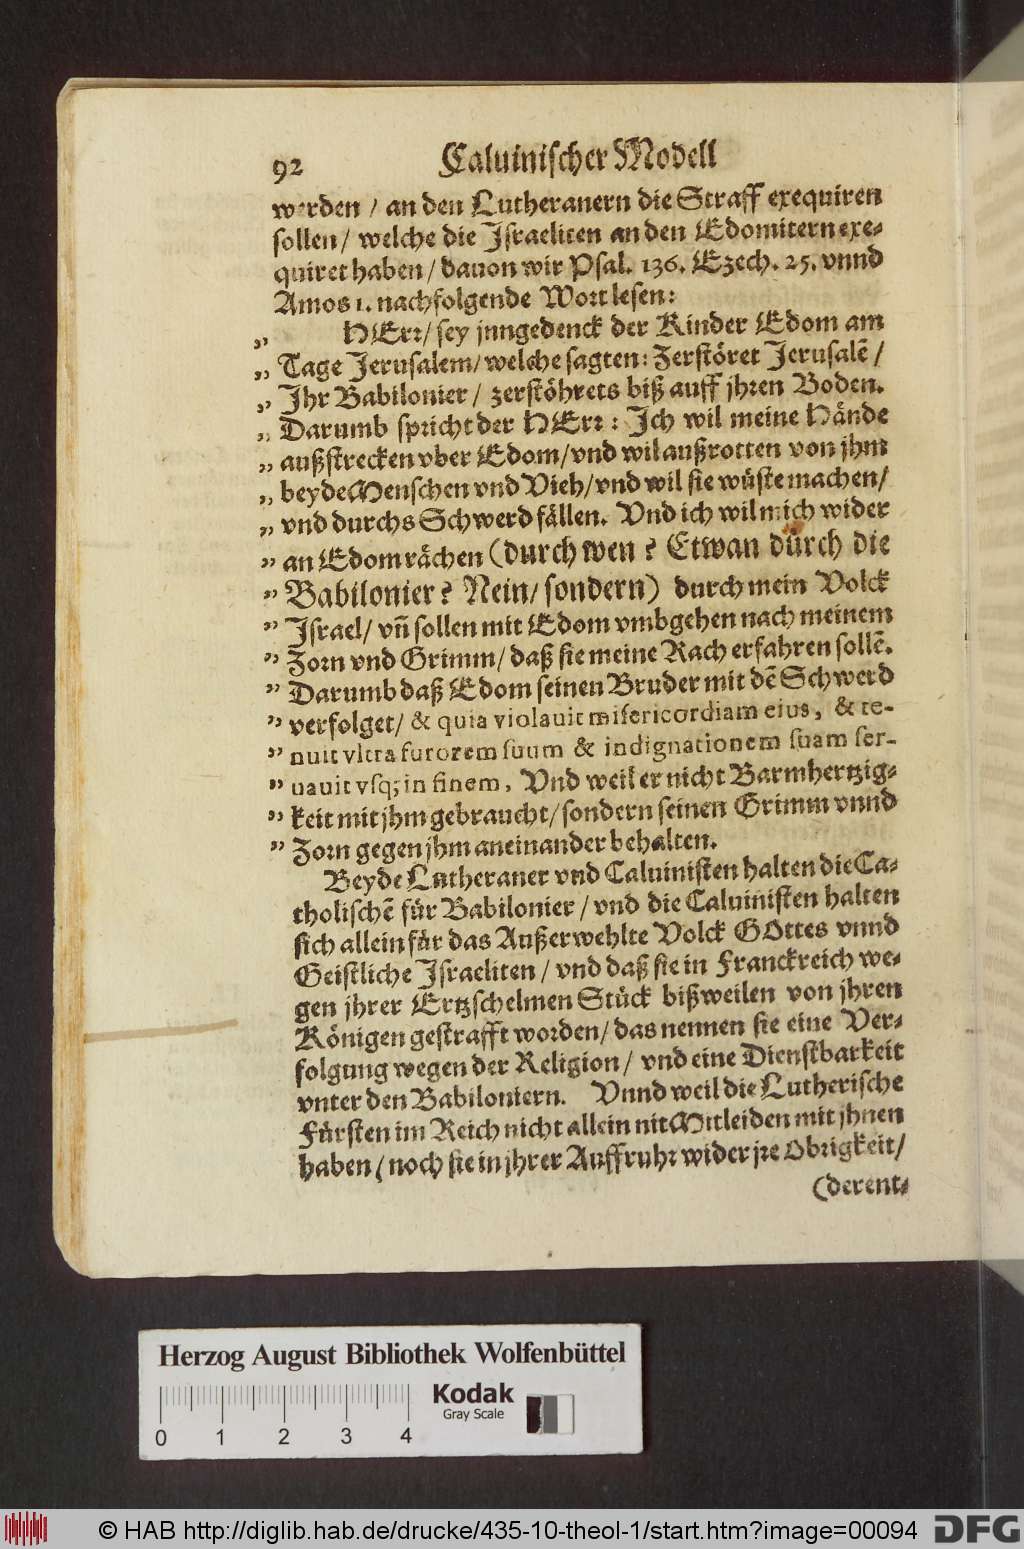 92 Caluinischer Modell
werden / an den Lutheranern die Straff exequiren
sollen / welche die Israeliten an den Edomitern exe-
quiret haben / dauon wir Psal. 136. Ezech. 25. vnnd
Amos 1. nachfolgende Wort lesen:
„ HErr / sey jnngedenck der Kinder Edom am
„ Tage Jerusalem / welche sagten: Zerstöret Jerusalē /
„ Ihr Babilonier / zerstöhrets biß auff jhren Boden.
„ Darumb spricht der HErr: Ich wil meine Hände
„ außstrecken vber Edom / vnd wil außrotten von jhm
„ beyde Menschen vnd Vieh / vnd wil sie wüste machen /
„ vnd durchs Schwerd fällen. Vnd ich wil mich wider
„ an Edom rächen (durch wen? Etwan dürch die
„ Babilonier? Nein / sondern) durch mein Volck
„ Israel / vn̄ sollen mit Edom vmbgehen nach meinem
„ Zorn vnd Grimm / daß sie meine Rach erfahren sollē.
„ Darumb daß Edom seinen Bruder mit dē Schwerd
„ verfolget / & quia violauit misericordiam eius, & te-
„ nuit vltra furorem suum & indignationem suam ser-
„ uauit vsq; in finem, Vnd weil er nicht Barmhertzig-
„ keit mit jhm gebraucht / sondern seinen Grimm vnnd
„ Zorn gegen jhm aneinander behalten.
Beyde Lutheraner vnd Caluinisten halten die Ca-
tholischē für Babilonier / vnd die Caluinisten halten
sich allein für das Außerwehlte Volck GOttes vnnd
Geistliche Israeliten / vnd daß sie in Franckreich we-
gen jhrer Ertzschelmen Stück bißweilen von jhren
Königen gestrafft worden / das nennen sie eine Ver-
folgung wegen der Religion / vnd eine Dienstbarkeit
vnter den Babiloniern. Vnnd weil die Lutherische
Fürsten im Reich nicht allein nit Mitleiden mit jhnen
haben / noch sie in jhrer Auffruhr wider jre Obrigkeit /
(derent-
Herzog August Bibliothek Wolfenbüttel
Kodak
Gray Scale
0 1 2 3 4
© HAB http://diglib.hab.de/drucke/435-10-theol-1/start.htm?image=00094
DFG